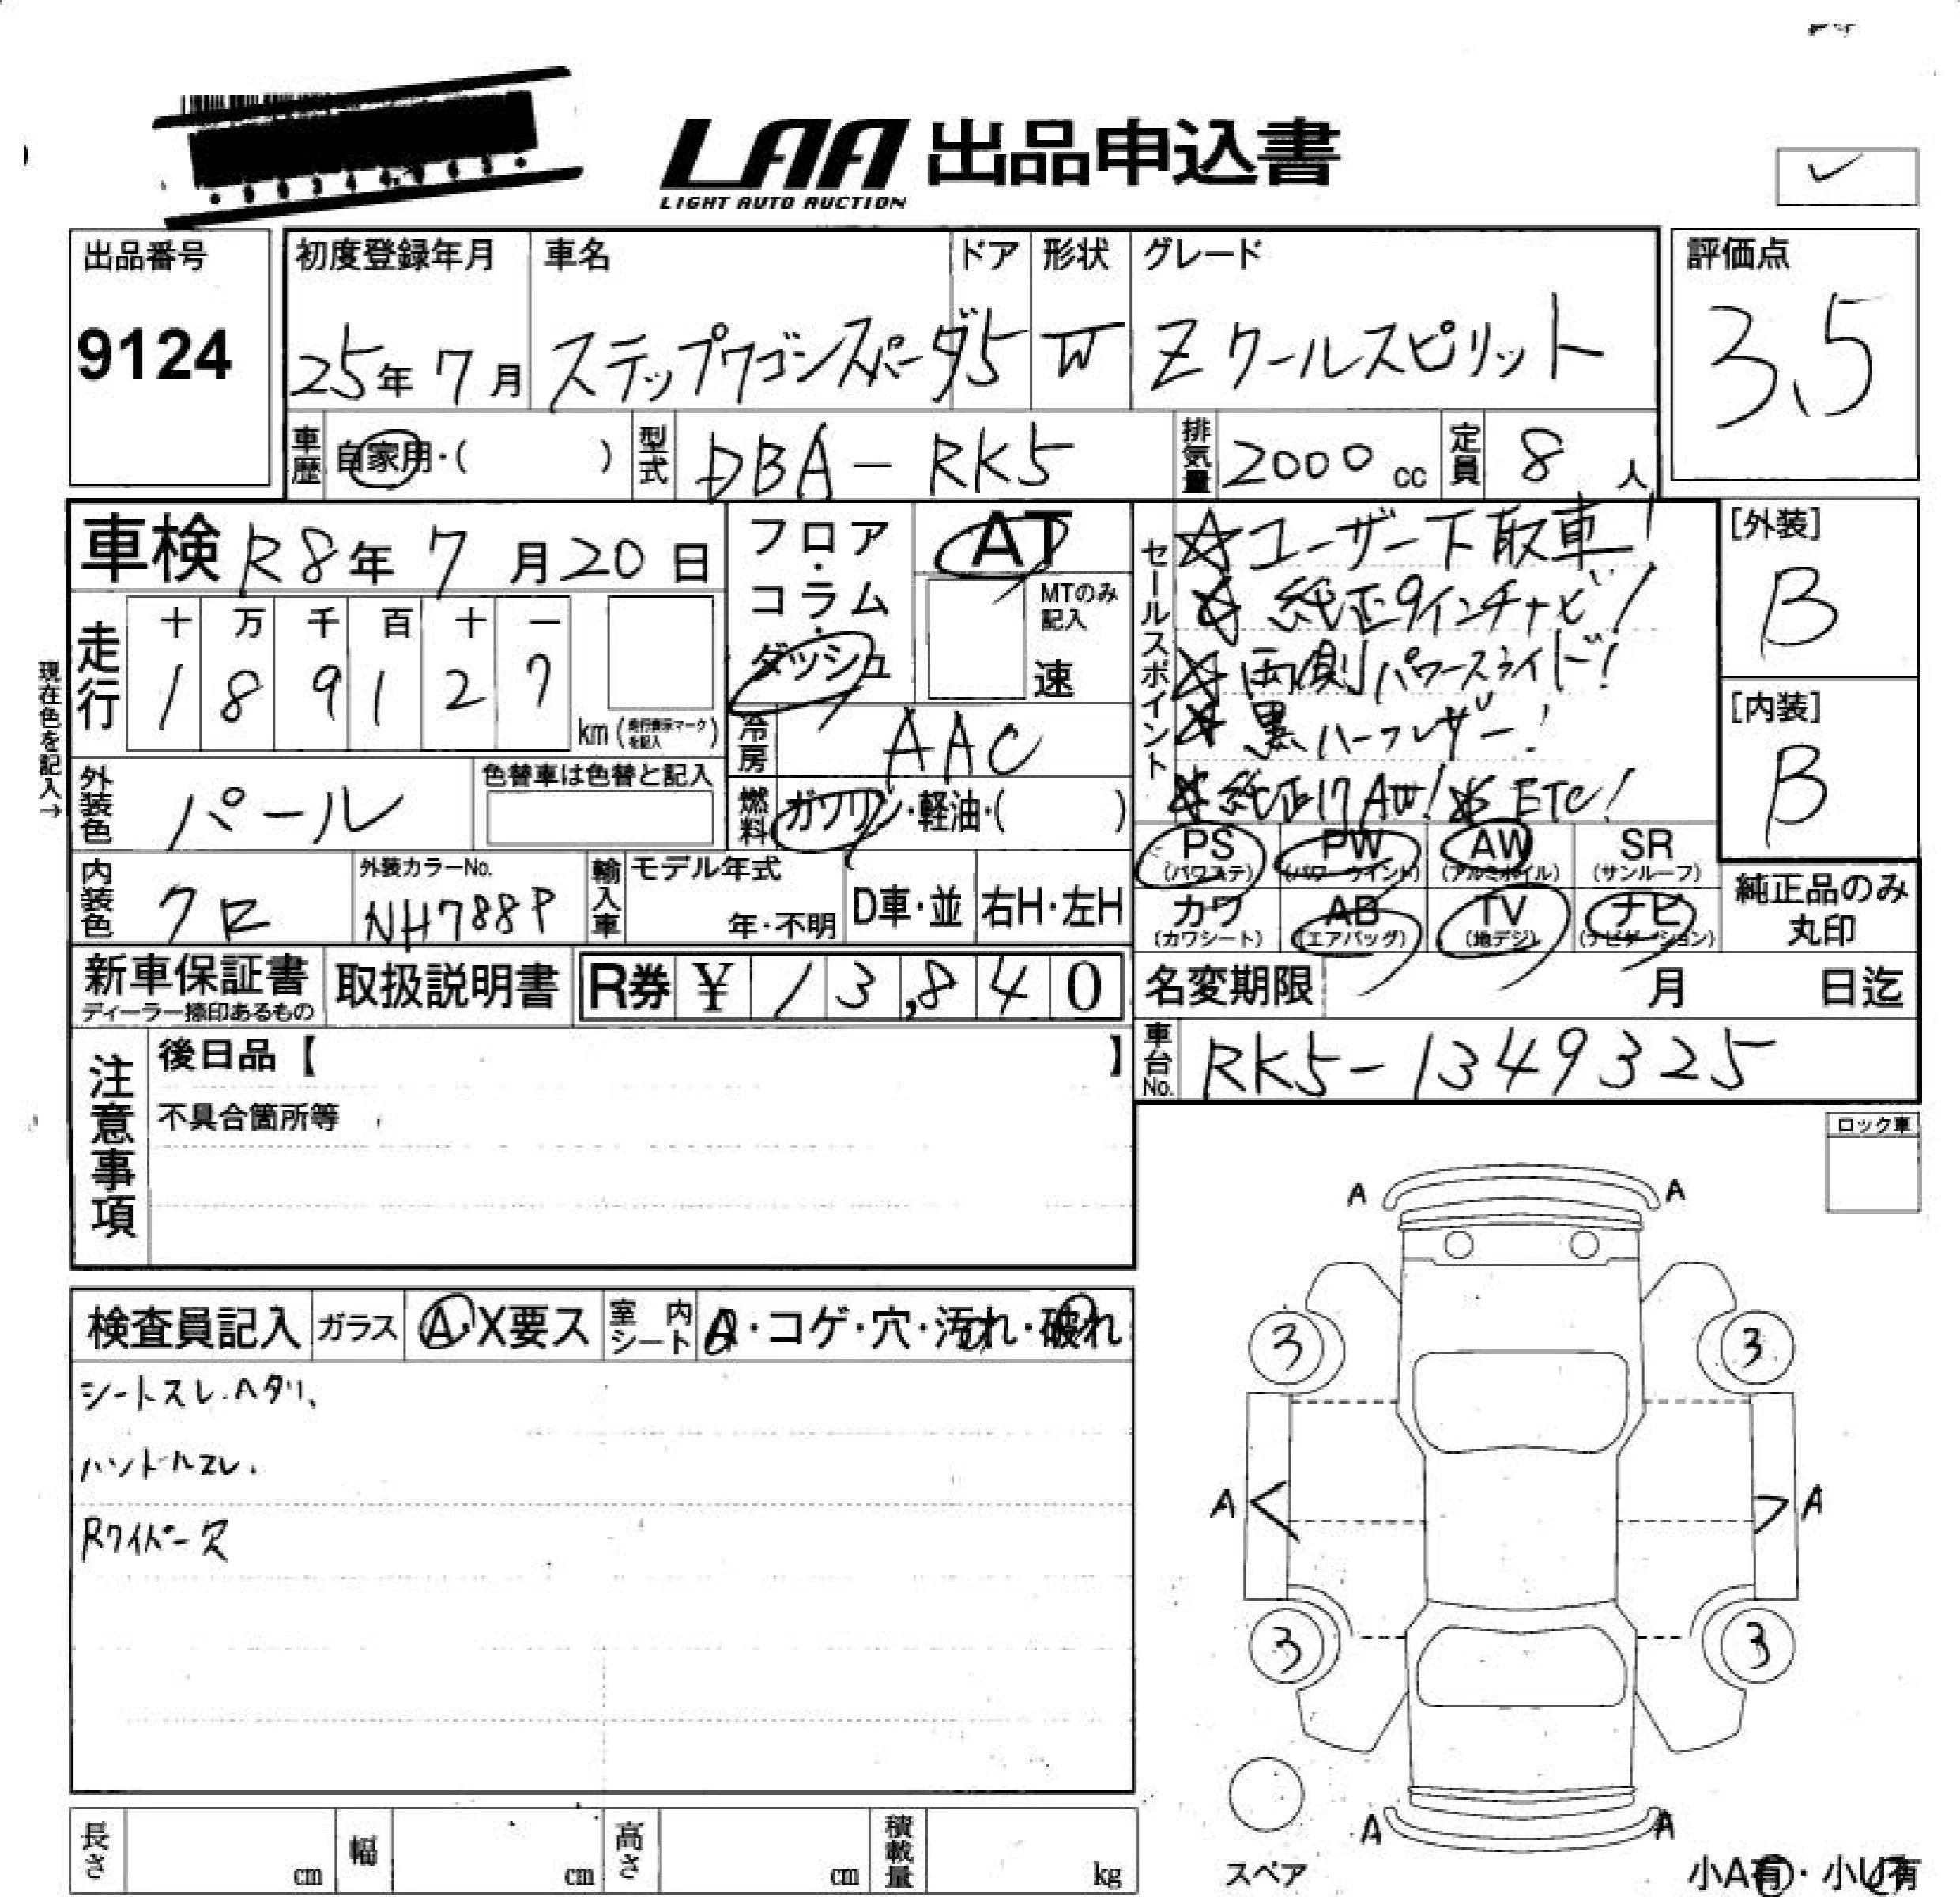 LAA 出品申込書
LIGHT AUTO AUCTION
出品番号
9124
初度登録年月
25年 7月
車名
ステップワゴンスパーダ
ドア
5
形状
W
グレード
Z クールスピリット
評価点
3.5
車歴
自家用・( )
型式
DBA-RK5
排気量
2000 cc
定員
8 人
車検 R8年 7月20日
フロア・コラム・ダッシュ
AT
MTのみ記入
速
セールスポイント
☆ユーザー下取車!
☆ 純正9インチナビ!
☆ 両側パワースライド!
☆ 黒ハーフレザー!
☆純正17AW!☆ETC!
[外装]
B
[内装]
B
現在色を記入→
走行
十 万 千 百 十 一
1 8 9 1 2 7
km (走行表示マークを記入)
冷房
AAC
外装色
パール
色替車は色替と記入
燃料
ガソリン・軽油・( )
PS
(パワステ)
PW
(パワーウインド)
AW
(アルミホイル)
SR
(サンルーフ)
カワ
(カワシート)
AB
(エアバッグ)
TV
(地デジ)
ナビ
(ナビゲーション)
純正品のみ
丸印
内装色
クロ
外装カラーNo.
NH788P
輸入車
モデル年式
年・不明
D車・並
右H・左H
新車保証書
ディーラー捺印あるもの
取扱説明書
R券 ¥ 13,840
名変期限 月 日迄
車台No.
RK5-1349325
注意事項
後日品【 】
不具合箇所等
ロック車
検査員記入
ガラス
A・X要ス
室内シート
・コゲ・穴・汚れ・破れ
シートスレ.ヘタリ、
ハンドルスレ.
Rワイパー欠
A A
3 3
A A
3 3
A A
スペア
小A有・小U有
長さ cm
幅 cm
高さ cm
積載量 kg